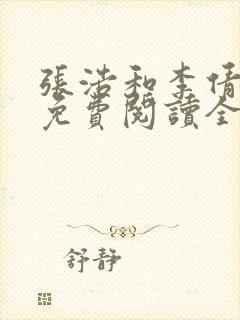 張浩和李倩
免費閱讀全
舒靜